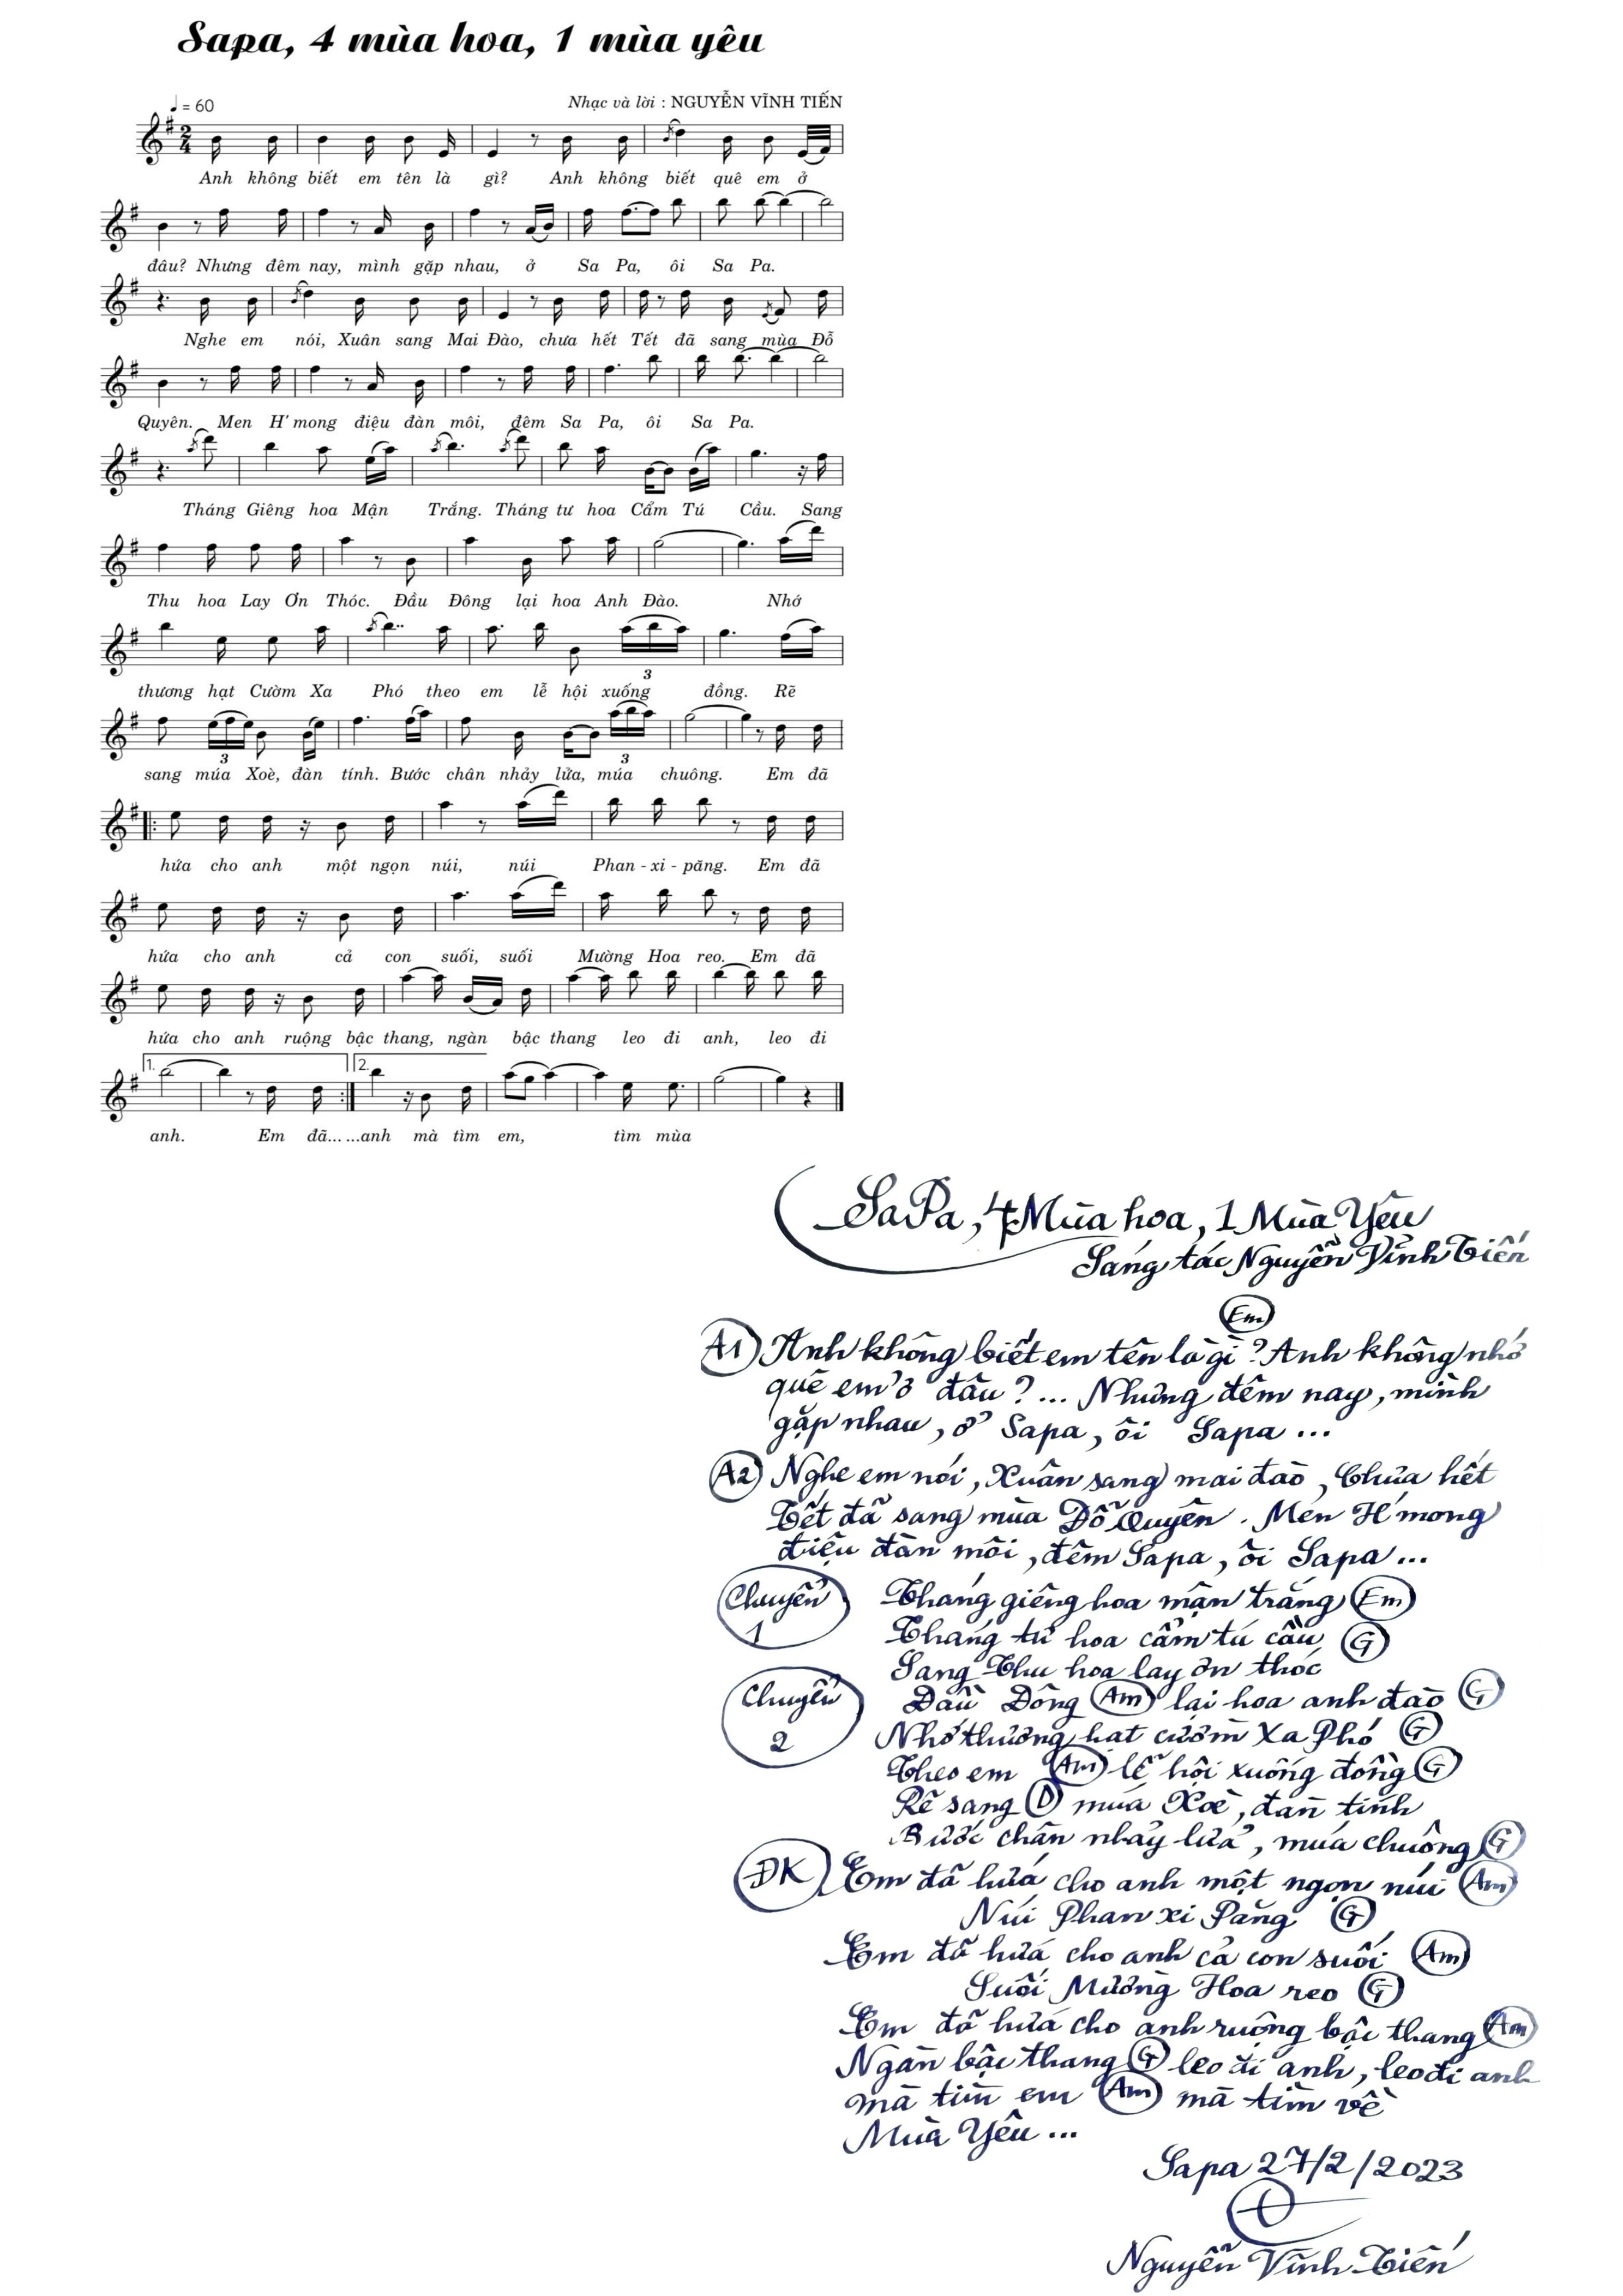 Sapa, 4 mùa hoa, 1 mùa yêu
♩ = 60
Nhạc và lời : NGUYỄN VĨNH TIẾN
2
4
Anh không biết em tên là gì? Anh không biết quê em ở
đâu? Nhưng đêm nay, mình gặp nhau, ở Sa Pa, ôi Sa Pa.
Nghe em nói, Xuân sang Mai Đào, chưa hết Tết đã sang mùa Đỗ
Quyên. Men H' mong điệu đàn môi, đêm Sa Pa, ôi Sa Pa.
Tháng Giêng hoa Mận Trắng. Tháng tư hoa Cẩm Tú Cầu. Sang
Thu hoa Lay Ơn Thóc. Đầu Đông lại hoa Anh Đào. Nhớ
3
thương hạt Cườm Xa Phó theo em lễ hội xuống đồng. Rẽ
3 3
sang múa Xoè, đàn tính. Bước chân nhảy lửa, múa chuông. Em đã
hứa cho anh một ngọn núi, núi Phan - xi - păng. Em đã
hứa cho anh cả con suối, suối Mường Hoa reo. Em đã
hứa cho anh ruộng bậc thang, ngàn bậc thang leo đi anh, leo đi
1. 2.
anh. Em đã... ...anh mà tìm em, tìm mùa
SaPa, 4 Mùa hoa, 1 Mùa Yêu
Sáng tác Nguyễn Vĩnh Tiến
Em
A1 Anh không biết em tên là gì? Anh không nhớ
quê em ở đâu? ... Nhưng đêm nay, mình
gặp nhau, ở Sapa, ôi Sapa ...
A2 Nghe em nói, Xuân sang mai đào, Chưa hết
Tết đã sang mùa Đỗ Quyên. Men H'mong
điệu đàn môi, đêm Sapa, ôi Sapa ...
Chuyển 1 Tháng giêng hoa mận trắng Em
Tháng tư hoa cẩm tú cầu G
Sang Thu hoa lay ơn thóc
Chuyển 2 Đầu Đông Am lại hoa anh đào G
Nhớ thương hạt cườm Xa Phó G
Theo em Am lễ hội xuống đồng G
Rẽ sang D múa Xoè, đàn tính
Bước chân nhảy lửa, múa chuông G
ĐK Em đã hứa cho anh một ngọn núi Am
Núi Phan xi Păng G
Em đã hứa cho anh cả con suối Am
Suối Mường Hoa reo G
Em đã hứa cho anh ruộng bậc thang Am
Ngàn bậc thang G leo đi anh, leo đi anh
mà tìm em Am mà tìm về
Mùa Yêu ...
Sapa 27/2/2023
Nguyễn Vĩnh Tiến